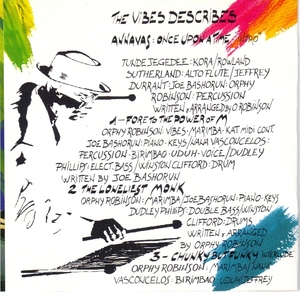 THE VIBES DESCRIBES
ANNAVAS: ONCE UPON A TIME "INTRO"
TUNDE JEGEDEE: KORA/ROWLAND
SUTHERLAND: ALTO FLUTE/JEFFREY
DURRANT: JOE BASHORUN: ORPHY
ROBINSON: PERCUSSION
WRITTEN & ARRANGED BY O ROBINSON
1 - FORE TO THE POWER OF M
ORPHY ROBINSON: VIBES: MARIMBA: KAT MIDI CONT.
JOE BASHORUN: PIANO: KEYS/NANA VASCONCELOS:
PERCUSSION: BIRIMBAO: UDUH: VOICE/DUDLEY
PHILLIPS: ELECT. BASS/WINSTON CLIFFORD: DRUM
WRITTEN BY JOE BASHORUN
2 THE LONELIEST MONK
ORPHY ROBINSON: MARIMBA/JOE BASHORUN: PIANO: KEYS
DUDLEY PHILLIPS: DOUBLE BASS/WINSTON
CLIFFORD: DRUMS
WRITTEN & ARRANGED
BY ORPHY ROBINSON
3 - CHUNKY BUT FUNKY INTERLUDE
ORPHY ROBINSON: MARIMBA/NANA
VASCONCELOS: BIRIMBAO: UDUH/JEFFREY